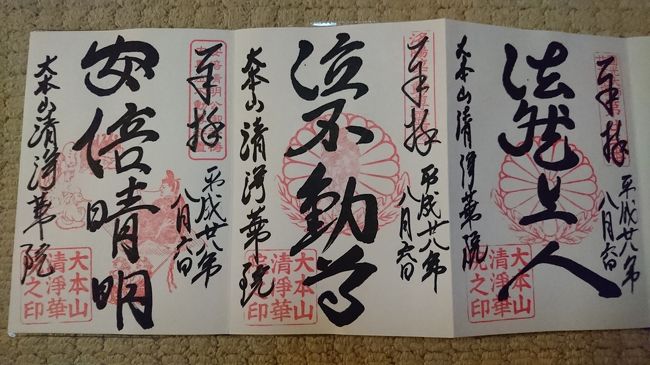 奉拝
平成廿八年
八月六日
法然上人
大本山清浄華院
大本山
清浄華
院之印
奉拝
平成廿八年
八月六日
泣不動尊
大本山清浄華院
大本山
清浄華
院之印
奉拝
平成廿八年
八月六日
安倍晴明
大本山清浄華院
大本山
清浄華
院之印